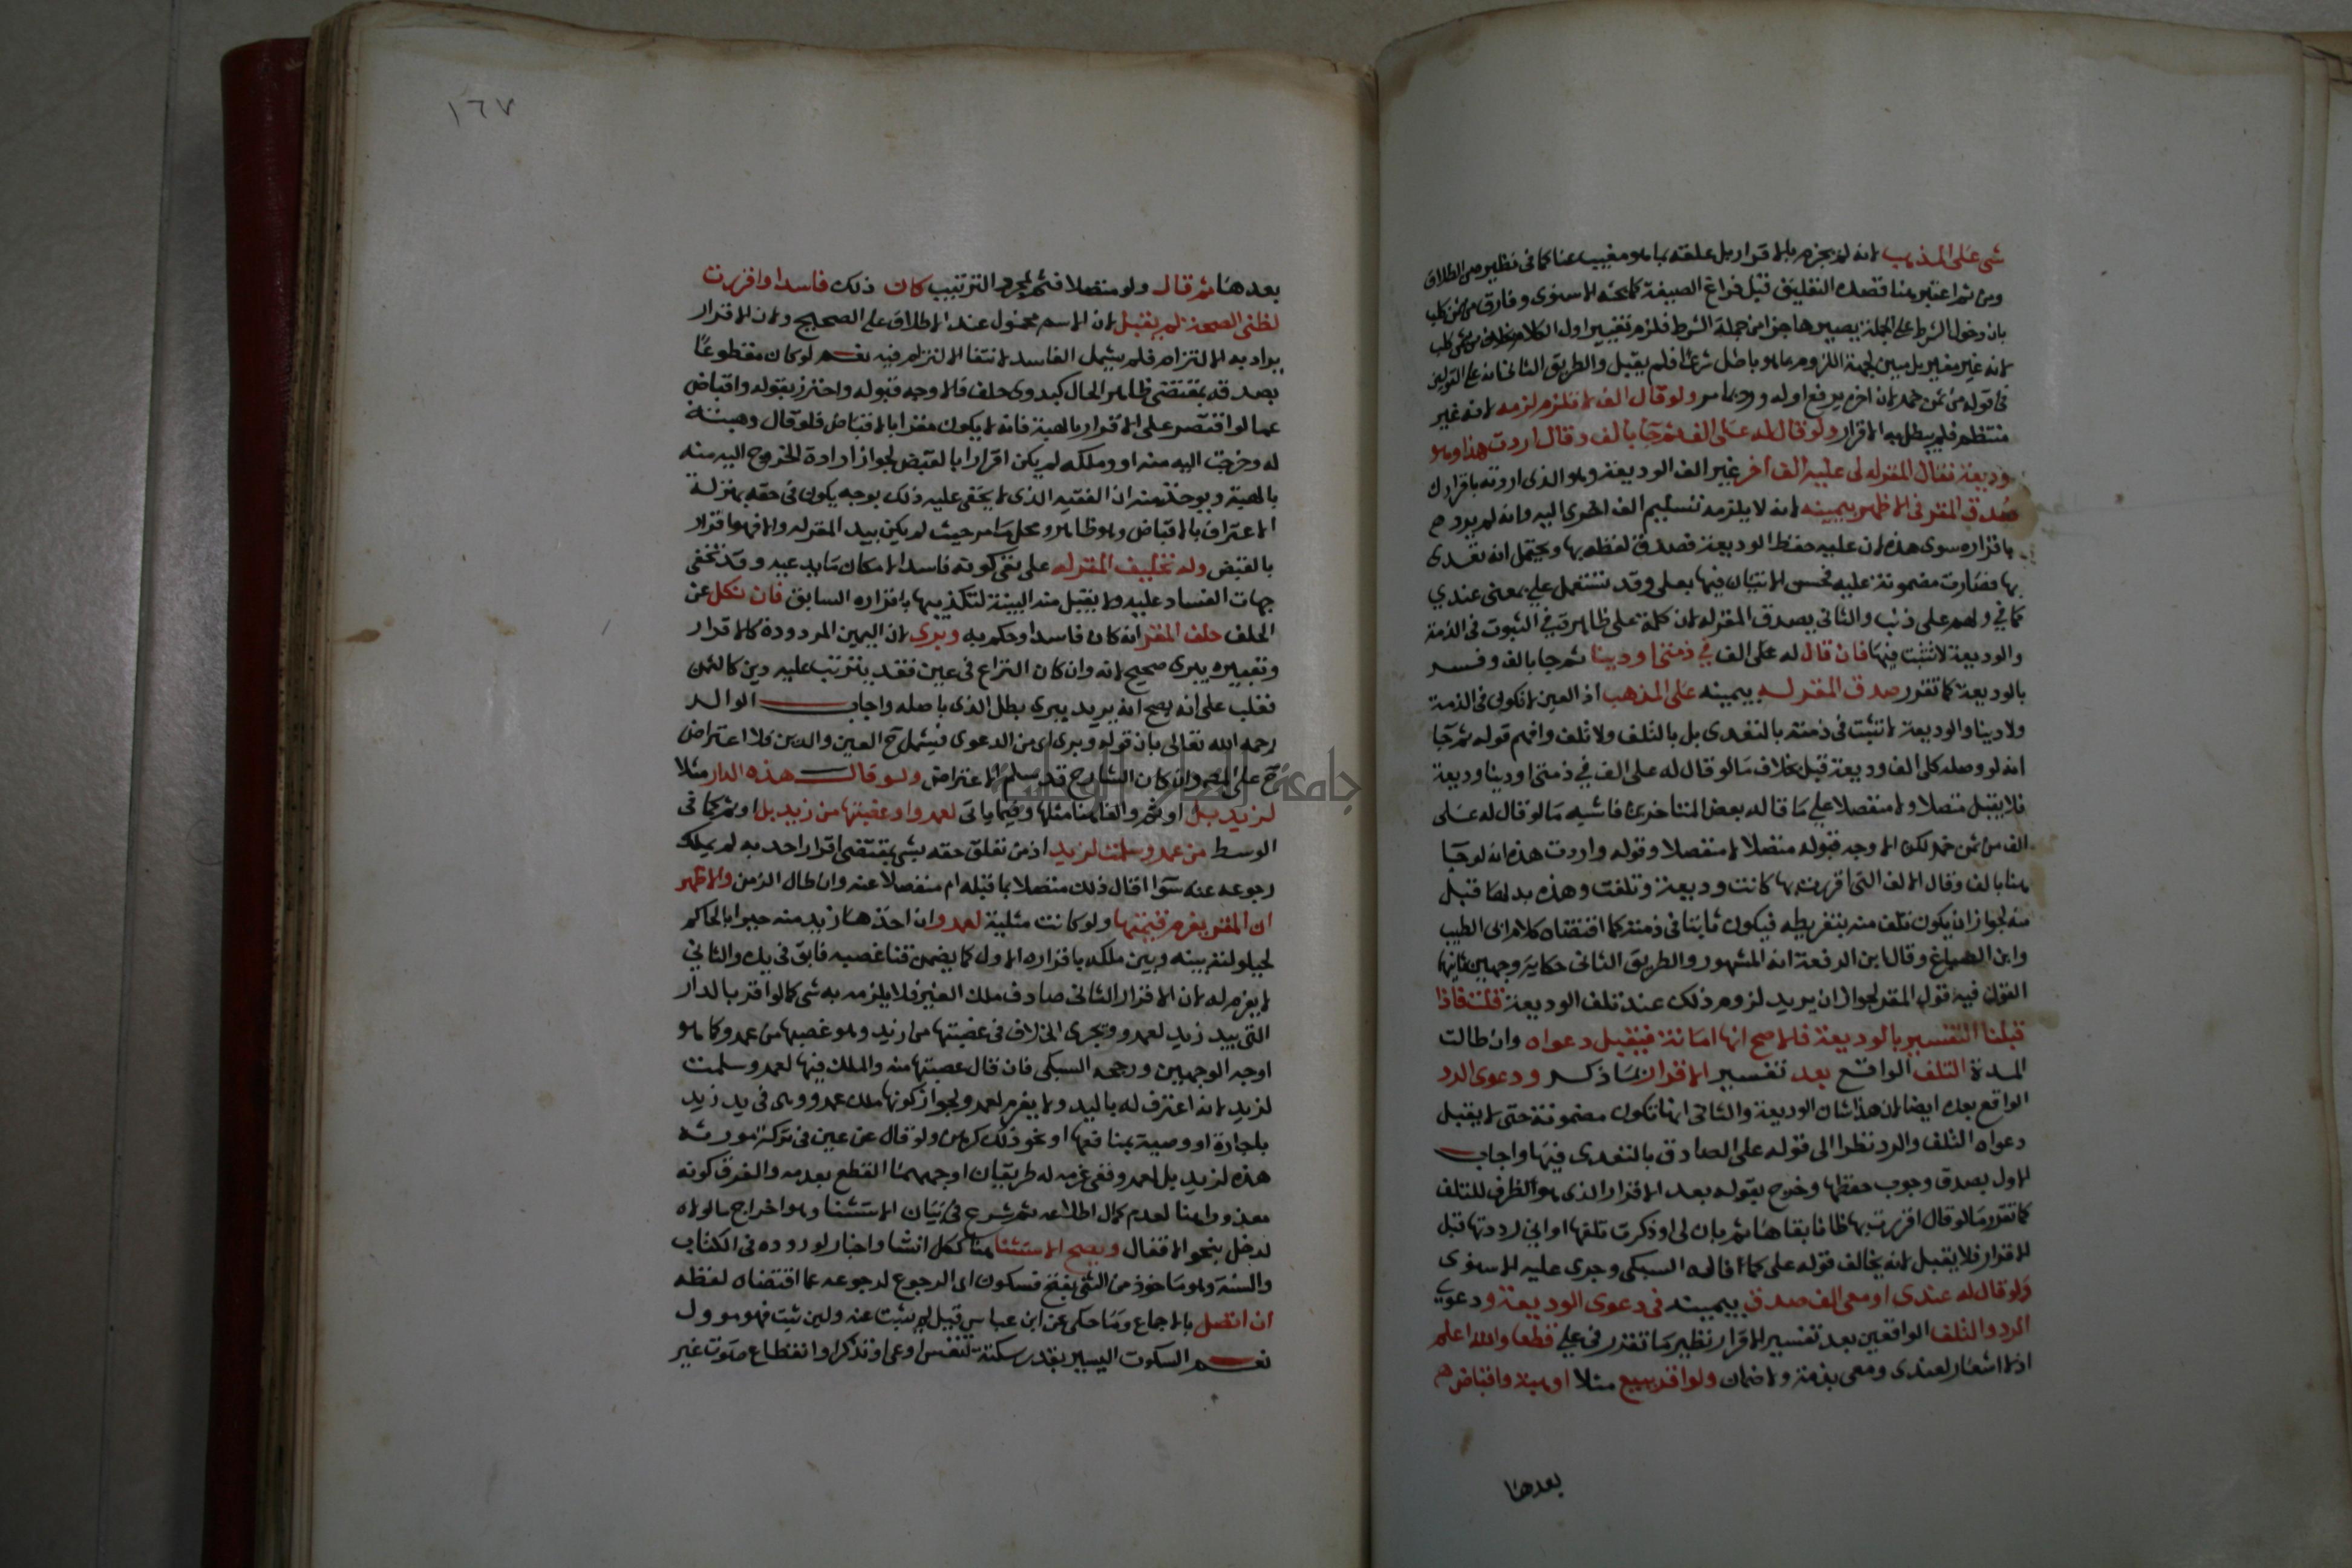 شي على المذهب لانه لم يجزم بالاقرار بل علقه بما هو مغيب عنا كما في نظيره من الطلاق
ومن ثم اعتبر هنا قصده التعليق قبل فراغ الصيغة كما بحثه الاسنوي وفارق من ثمن كلب
بان دخول الشرط على الجملة يصيرها جزا من جملة الشرط فلزم تغيير اول الكلام بخلاف من ثمن كلب
لانه غير مغير بل مبين لجهة اللزوم بما هو باطل شرعا فلم يقبل والطريق الثاني انه على القولين
في قوله من ثمن خمر لان اخره يرفع اوله ورد بما مر ولو قال الف لا تلزم لزمه لانه غير
منتظم فلم يبطل به الاقرار ولو قال له علي الف ثم جا بالف وقال اردت هذا وهو
وديعة فقال المقر له لي عليه الف اخر غير الف الوديعة وهو الذي اردته باقرارك
صدق المقر في الاظهر بيمينه لانه لا يلزمه تسليم الف اخرى اليه وانه لم يرد
باقراره سوى هذه لان عليه حفظ الوديعة فصدق لفظه بها ويحتمل انه تعدى
بها فصارت مضمونة عليه فحسن الاتيان فيها بعلي وقد تستعمل علي بمعنى عندي
كما في ولهم علي ذنب والثاني يصدق المقر له لان كلمة علي ظاهرة في الثبوت في الذمة
والوديعة لا تثبت فيها فان قال له علي الف في ذمتي او دينا ثم جا بالف وفسر
بالوديعة كما تقرر صدق المقر له بيمينه على المذهب اذ العين لا تكون في الذمة
ولا دينا والوديعة لا تثبت في ذمته بالتعدي بل بالتلف ولا تلف وافهم قوله ثم جا
انه لو وصله كلي الف وديعة قبل بخلاف ما لو قال له علي الف في ذمتي او دينا وديعة
فلا يقبل متصلا ولا منفصلا على ما قاله بعض المتاخرين فاشبه ما لو قال له علي
الف من ثمن خمر لكن الاوجه قبوله متصلا لا منفصلا وقوله واردت هذه انه لو جا
هنا بالف وقال الالف التي اقررت بها كانت وديعة وتلفت وهذه بدلها قبل
منه لجواز ان يكون تلف منه بتفريطه فيكون ثابتا في ذمته كما اقتضاه كلام ابي الطيب
وابن الصباغ وقال ابن الرفعة انه المشهور والطريق الثاني حكاية وجهين ثانيها
القول فيه قول المقر لجواز ان يريد لزوم ذلك عند تلف الوديعة قلت فاذا
قبلنا التفسير بالوديعة فالاصح انها امانة فيقبل دعواه وان طالت
المدة التلف الواقع بعد تفسير الاقرار بما ذكر ودعوى الرد
الواقع بعده ايضا لان هذا شان الوديعة والثاني انها تكون مضمونة حتى لا يقبل
دعواه التلف والرد نظرا الى قوله علي الصادق بالتعدي فيها واجاب
الاول بصدق وجوب حفظها وخرج بقوله بعد الاقرار الذي هو الظرف للتلف
كما تقرر ما لو قال اقررت بها ظانا بقاها ثم بان لي او ذكرت تلفها او اني رددتها قبل
الاقرار فلا يقبل لانه يخالف قوله علي كما قاله السبكي وجرى عليه الاسنوي
ولو قال له عندي او معي الف صدق بيمينه في دعوى الوديعة ودعوى
الرد والتلف الواقعين بعد تفسير الاقرار نظير ما تقرر في علي قطعا والله اعلم
اذ لا اشعار لعندي ومعي بذمة ولا ضمان ولو اقر ببيع مثلا او هبة واقباض
بعدها
١٦٧
بعدها ثم قال ولو متصلا فثم لمجرد الترتيب كان ذلك فاسدا واقررت
لظني الصحة لم يقبل لان الاسم محمول عند الاطلاق على الصحيح ولان الاقرار
يراد به الالتزام فلم يشمل الفاسد لانتفا الالتزام فيه نعم لو كان مقطوعا
بصدقه بمقتضى ظاهر الحال كبدوي حلف فالاوجه قبوله واحترز بقوله واقباض
عما لو اقتصر على الاقرار بالهبة فانه لا يكون مقرا بالاقباض فلو قال وهبته
له وخرجت اليه منه او وملكه لم يكن اقرارا بالقبض لجواز ارادة الخروج اليه منه
بالهبة ويوخذ منه ان الفقيه الذي لا يخفى عليه ذلك بوجه يكون في حقه بمنزلة
الاعتراف بالاقباض وهو ظاهر ومحل ما مر حيث لم يكن بيد المقر له والا فهو اقرار
بالقبض وله تحليف المقر له على نفي كونه فاسدا لامكان ما يدعيه وقد تخفى
جهات الفساد عليه ولا يقبل منه البينة لتكذيبها باقراره السابق فان نكل عن
الحلف حلف المقر انه كان فاسدا وحكم به وبري لان اليمين المردودة كالاقرار
وتعبيره يبري صحيح لانه وان كان النزاع في عين فقد يترتب عليه دين كالثمن
فغلب على انه يصح انه يريد يبري بطل الذي باصله واجاب الوالد
رحمه الله تعالى بان قوله وبري اي من الدعوى فيشمل ح العين والدين فلا اعتراض
ح على المص وان كان الشارح قد سلم الاعتراض ولو قال هذه الدار مثلا
لزيد بل او ثم والفا هنا مثلها وفيما ياتي لعمرو او غصبتها من زيد بل او ثم كما في
الوسط من عمرو سلمت لزيد اذ من تعلق حقه بشي بمقتضى اقرار احد به لم يملك
رجوعه عنه سوا اقال ذلك متصلا بما قبله ام منفصلا عنه وان طال الزمن والاظهر
ان المقر يغرم قيمتها ولو كانت مثلية لعمرو وان اخذها زيد منه جبرا بالحاكم
لحيلولته بينه وبين ملكه باقراره الاول كما يضمن قنا غصبه فابق في يده والثاني
لا يغرم له لان الاقرار الثاني صادف ملك الغير فلا يلزمه به شي كما لو اقر بالدار
التي بيد زيد لعمرو ويجري الخلاف في غصبتها من زيد وهو غصبها من عمرو كما هو
اوجه الوجهين ورجحه السبكي فان قال غصبتها منه والملك فيها لعمرو سلمت
لزيد لانه اعترف له باليد ولا يغرم لعمرو لجواز كونها ملك عمرو وهي في يد زيد
باجارة او وصية بمنافعها او نحو ذلك كرهن ولو قال عن عين في تركة مورثه
هذه لزيد بل لعمرو ففي غرمه له طريقان اوجههما القطع بعدمه والفرق كونه
معذورا هنا لعدم كمال اطلاعه ثم شرع في بيان الاستثنا وهو اخراج ما لولاه
لدخل بنحو الا فقال ويصح الاستثنا هنا ككل انشا واخبار لوروده في الكتاب
والسنة وهو ماخوذ من الثني بفتح فسكون اي الرجوع لرجوعه عما اقتضاه لفظه
ان اتصل بالاجماع وما حكي عن ابن عباس قيل لم يثبت عنه ولين ثبت فهو موول
نعم السكوت اليسير بقدر سكتة تنفس او عي او تذكر او انقطاع صوت غير